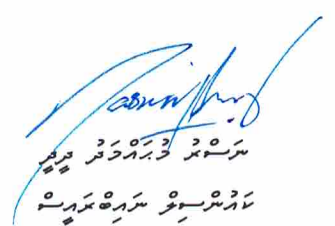 ނަސްރު މުޙައްމަދު ދީދީ
ކައުންސިލް ނައިބުރައީސް